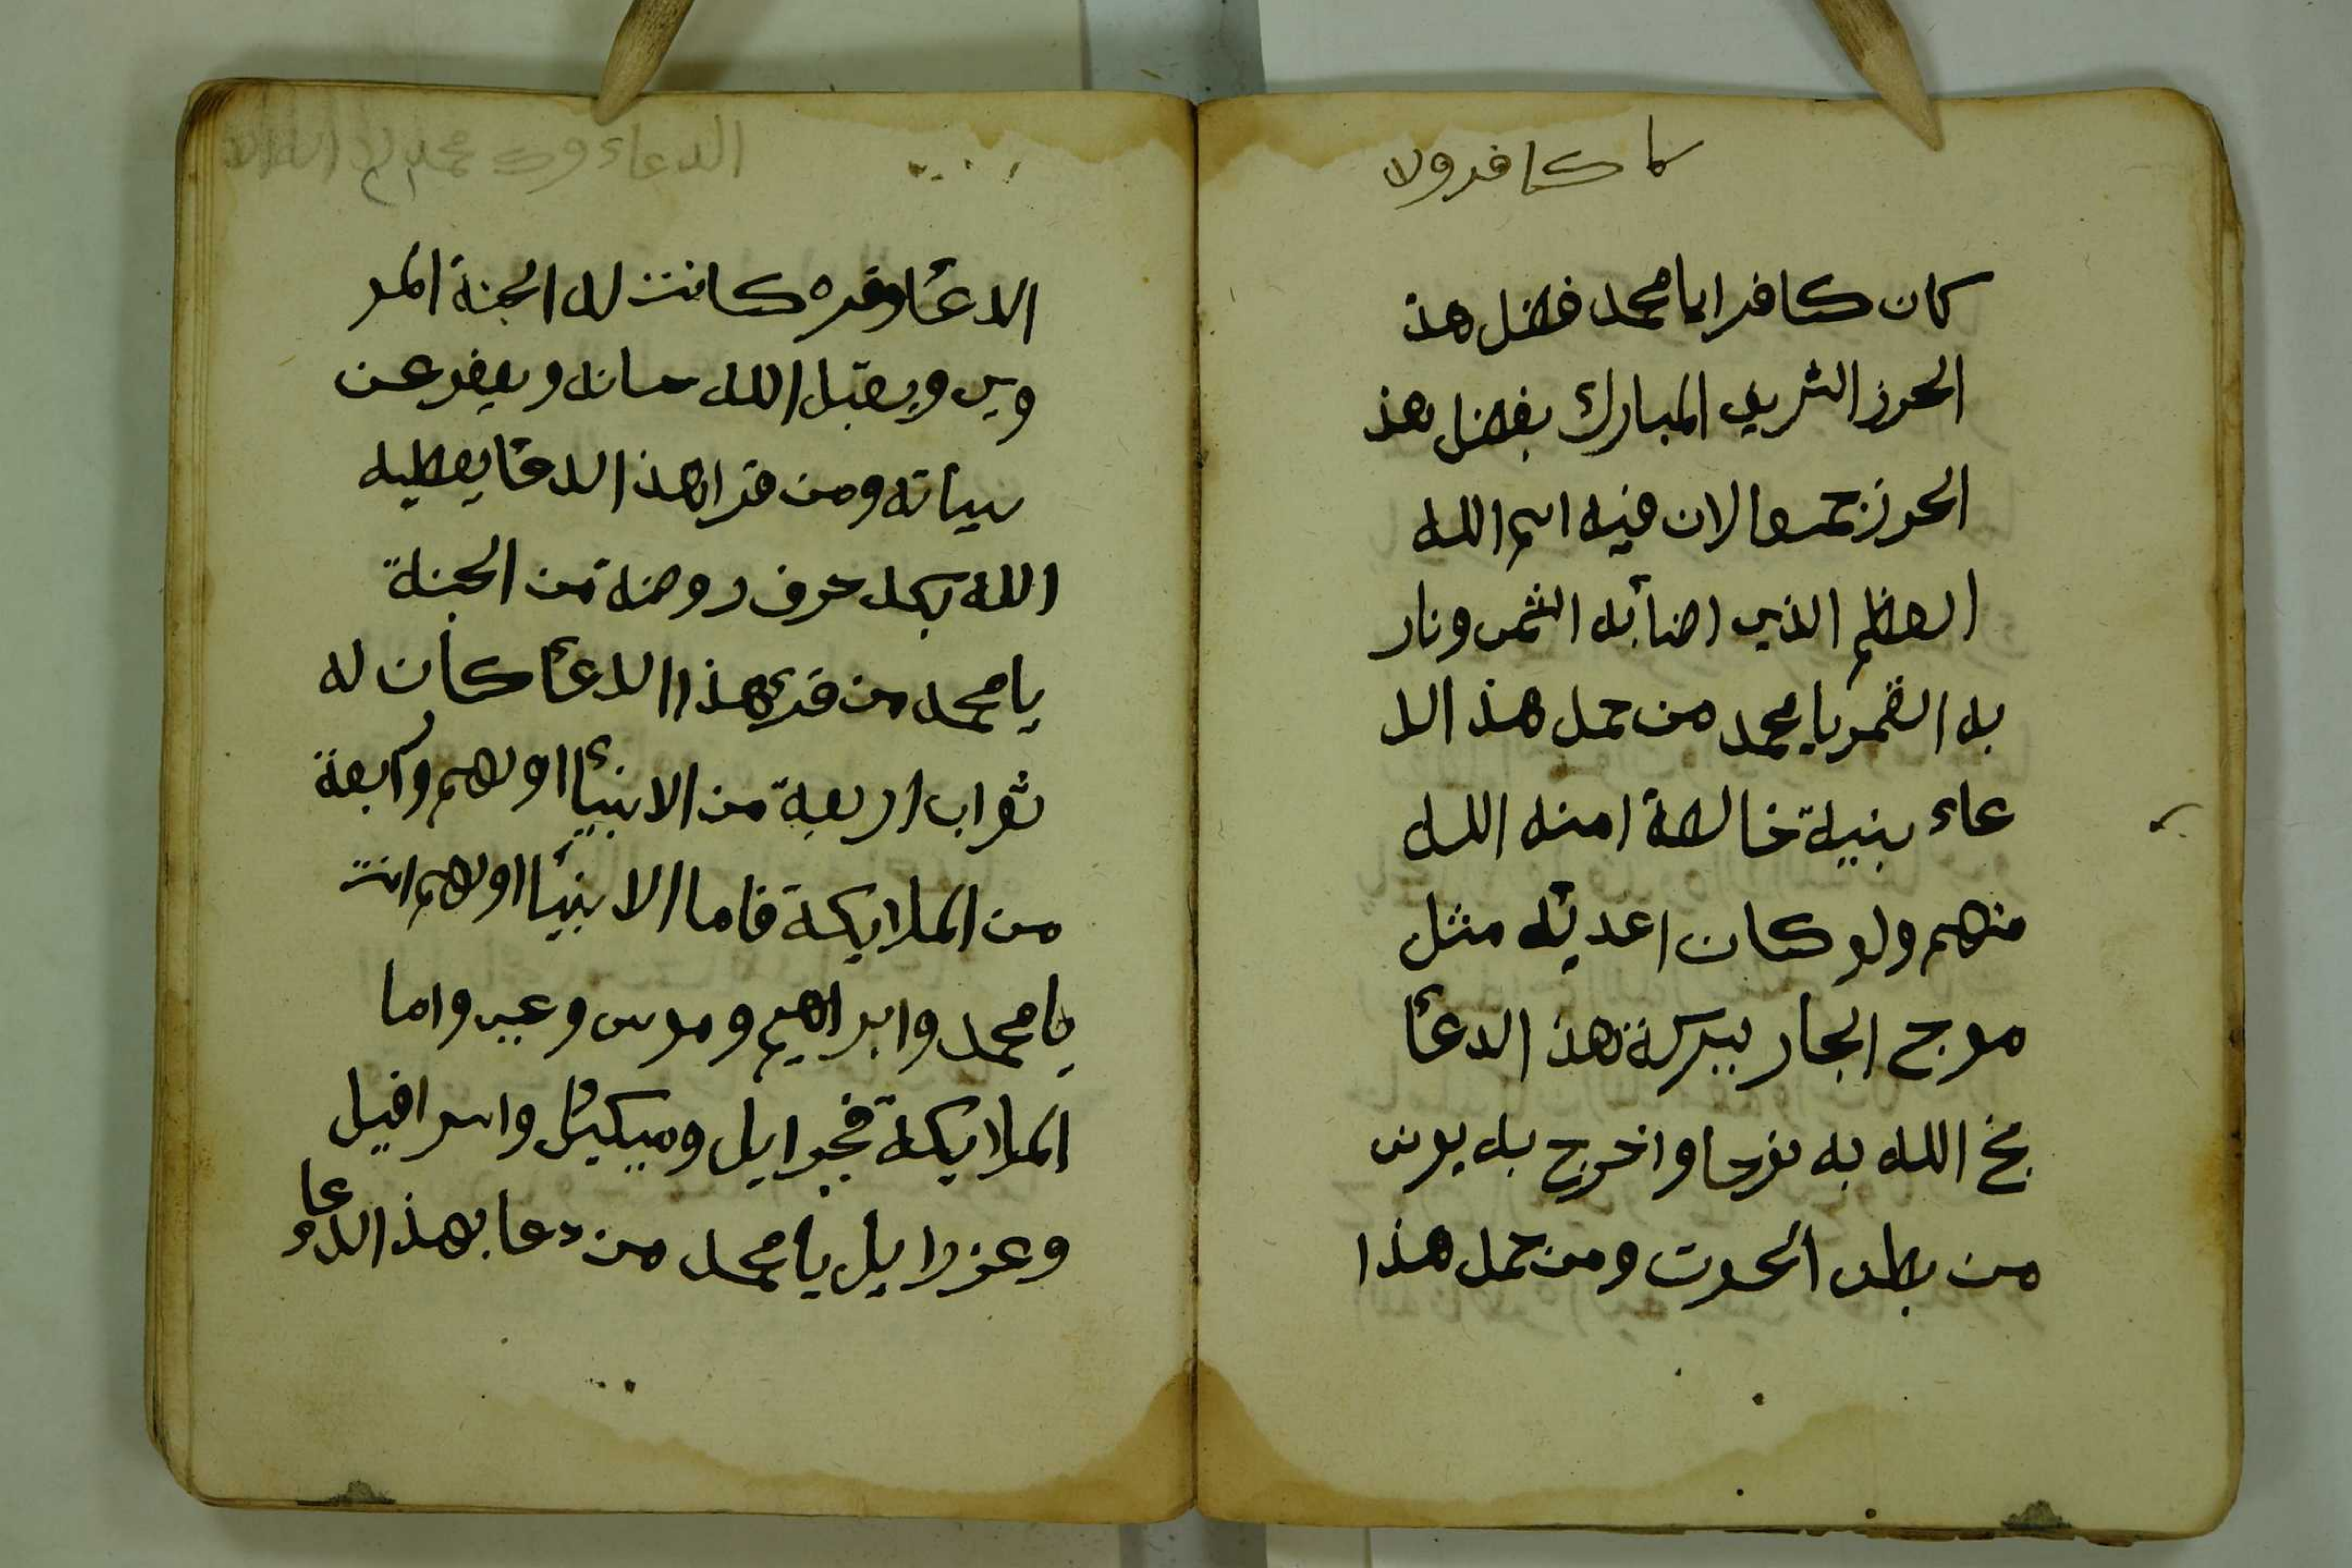 كا كافرولا
كان كافرا يا محمد فضل هذ
الحرز الشريف المبارك بفضل هذ
الحرز لان فيه اسم الله
العظيم الذي اضأ به الشمس ونار
به القمر يا محمد من حمل هذ الد
عاء بنية خالصة امنه الله
منهم ولو كان اعديه مثل
موج البحار ببركة هذ الدعأ
نجح الله به نوحا واخرج به يونس
من بطن الحوت ومن حمل هذا
الدعاء
الدعأ وقره كانت له الجنة المو
ويقبل الله حسناته ويغفر عن
سياته ومن قرا هذ الدعأ يعطيه
الله بكل حرف روضة من الجنة
يا محمد من قرئ هذا الدعأ كان له
ثواب اربعة من الانبيأ اولهم وآربعة
من الملايكة فاما الانبيأ اولهم انت
يا محمد وابراهيم وموسى وعيسى واما
الملايكة فجبرايل وميكيئل واسرافيل
وعزرايل يا محمد من دعا بهذ الدعا